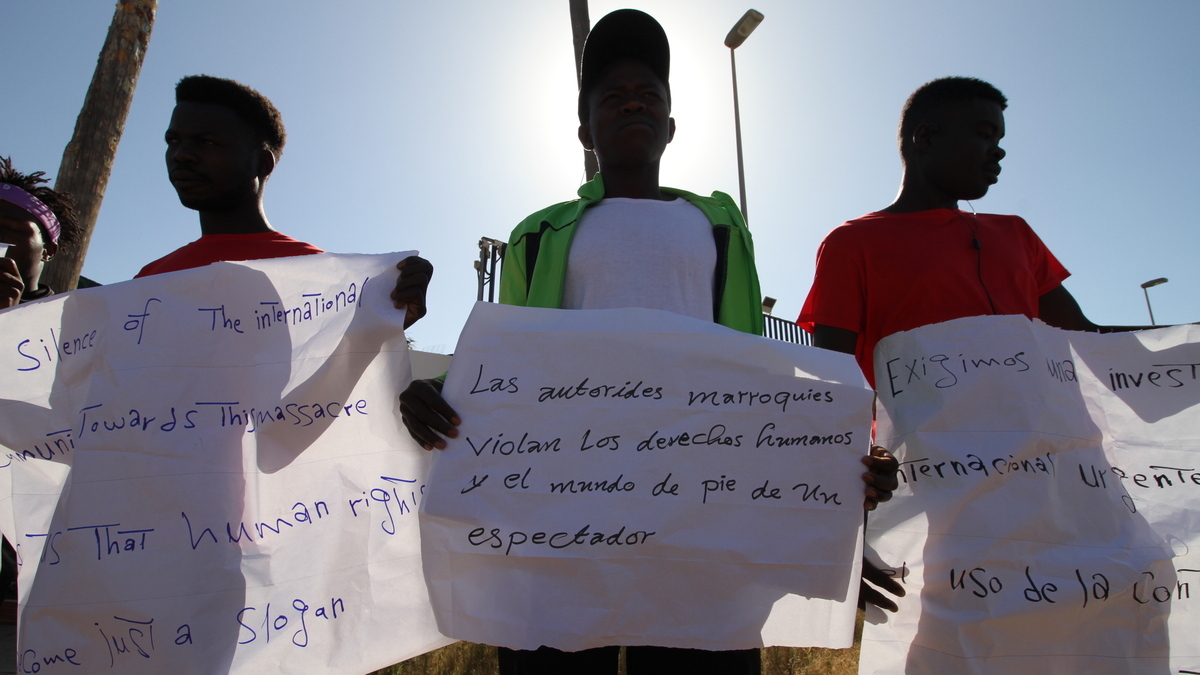 Silence of The international
Towards This massacre
That human rights
come just a Slogan
Las autorides marroquies
violan Los derechos humanos
y el mundo de pie de un
espectador
Exigimos una
Urgente
uso de la